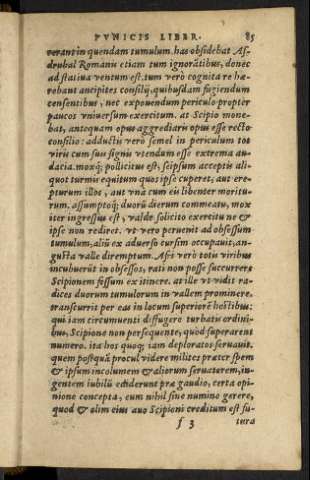 PVNICIS LIBER. 85
verant in quendam tumulum. has obsidebat As-
drubal Romanis etiam tum ignorātibus, donec
ad statiua ventum est. tum verò cognita re hæ-
rebant ancipites consilij, quibusdam fugiendum
censentibus, nec exponendum periculo propter
paucos vniuersum exercitum. at Scipio mone-
bat, antequam opus aggrediaris opus esse recto
consilio: adductis verò semel in periculum tot
viris cum suis signis vtendum esse extrema au-
dacia. moxq; pollicitus est, seipsum acceptis ali-
quot turmis equitum quos ipse cuperet, aut ere-
pturum illos, aut vnà cum eis libenter moritu-
rum. assumptoq; duorū dierum commeatu, mox
iter ingressus est, valde solicito exercitu ne &
ipse non rediret. vt vero peruenit ad obsessum
tumulum, aliū ex aduerso cursim occupauit, an-
gusta valle diremptum. Afri verò totis viribus
incubuerūt in obsessos, rati non posse succurrere
Scipionem fessum ex itinere. at ille vt vidit ra-
dices duorum tumulorum in vallem prominere,
transcurrit per eas in locum superiorē hostibus:
qui iam circumuenti diffugere turbatis ordini-
bus, Scipione non persequente, quòd superarent
numero. ita hos quoq; iam deploratos seruauit.
quem postquā procul videre milites præter spem
& ipsum incolumem & aliorum seruatorem, in-
gentem iubilū ediderunt præ gaudio, certa opi-
nione concepta, eum nihil sine numine gerere,
quod & olim eius auo Scipioni creditum est fu-
f 3 tura